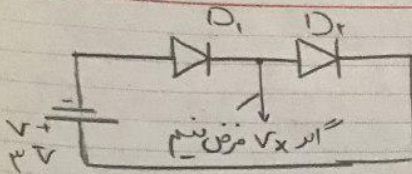 D۱ D۲
-
+
V
۳V
اگر Vx فرض کنیم